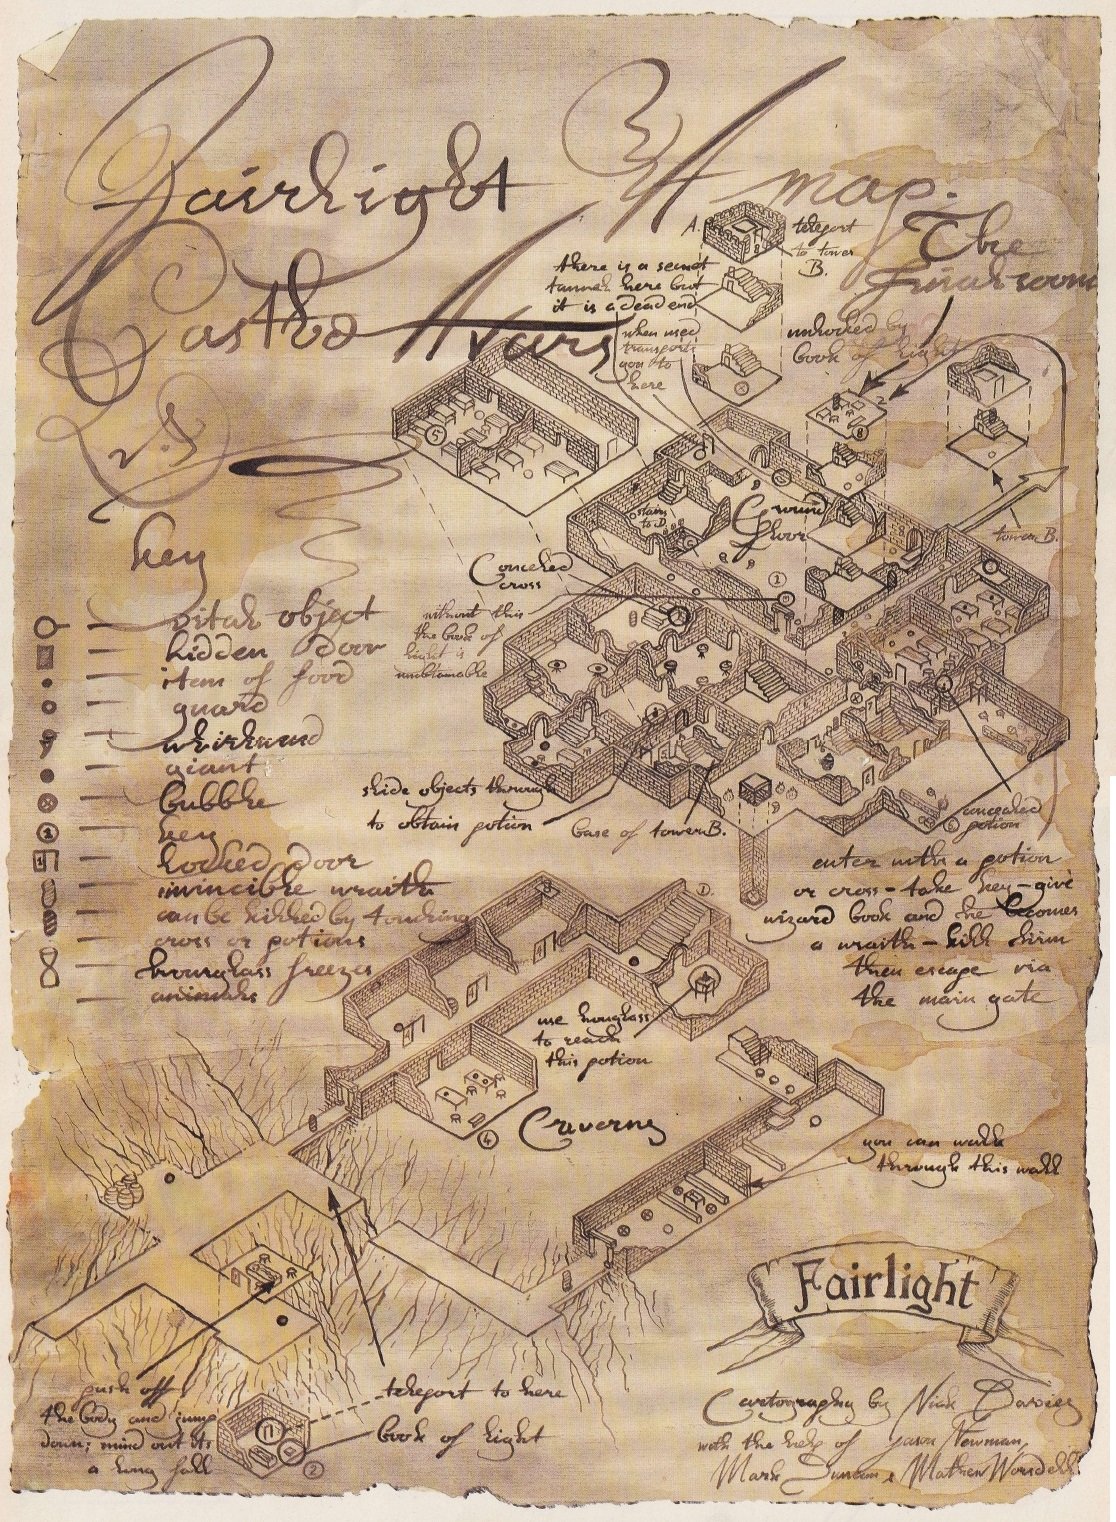 Fairlight A map.
Castle Avars
The
Final room
A.
teleport
to tower
B.
there is a secret
tunnel here but
it is a dead end
when used
transports
you to
here
unlocked by
book of light
2
8
5
stairs
to D.
Ground
floor
tower B.
Concealed
cross
1
without this
the book of
light is
unobtainable
key
vital object
hidden door
item of food
guard
whirlwind
giant
bubble
1
key
1
locked door
invincible wraith
can be killed by touching
cross or potions
hourglass freezes
animals
slide objects through
to obtain potion
base of tower B.
6
concealed
potion
enter with a potion
or cross - take key - give
wizard book and he becomes
a wraith - kill him
then escape via
the main gate
D.
use hourglass
to reach
this potion
4
Caverns
you can walk
through this wall
push off
the body and jump
down; mind out its
a long fall
teleport to here
book of light
2
Fairlight
Cartography by Nick Davies
with the help of Jason Newman,
Mark Duncan & Mathew Worsdell